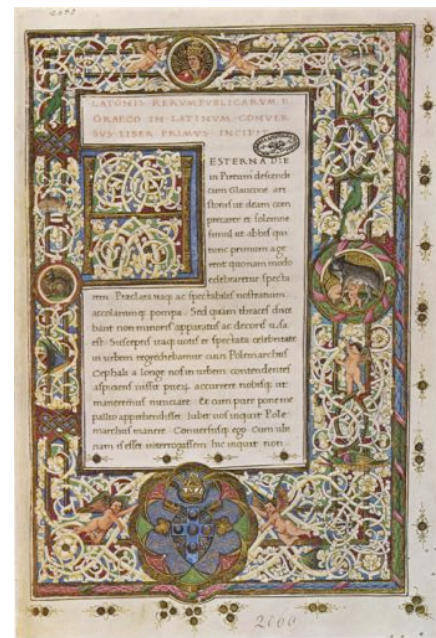 LATONIS RERVMPVBLICARVM E
GRAECO IN LATINVM CONVER
SVS LIBER PRIMVS INCIPIT
HESTERNA DIE
in Pireum descendi
cum Glaucone ari
stonis ut deam com
precarer et solemne
simul ut
nunc primum age
rent quonam modo
celebraretur specta
rem. Praeclara itaq; ac spectabilis nostratium
accolarumq; pompa. Sed quam thraces duce
bant non minoris apparatus ac decoris uisa
est. Susceptis itaq; uotis et spectata celebritate
in urbem regrediebamur cum Polemarchus
Cephali a longe nos in urbem contendentes
aspiciens iussit accurrere nobisq; ut
maneremus nunciare. Et cum puer pone me
pallio apprehendisset. Iubet uos inquit Pole
marchus manere. Conuersusq; ego. Cum ubi
nam is esset interrogassem hic inquit non
2000